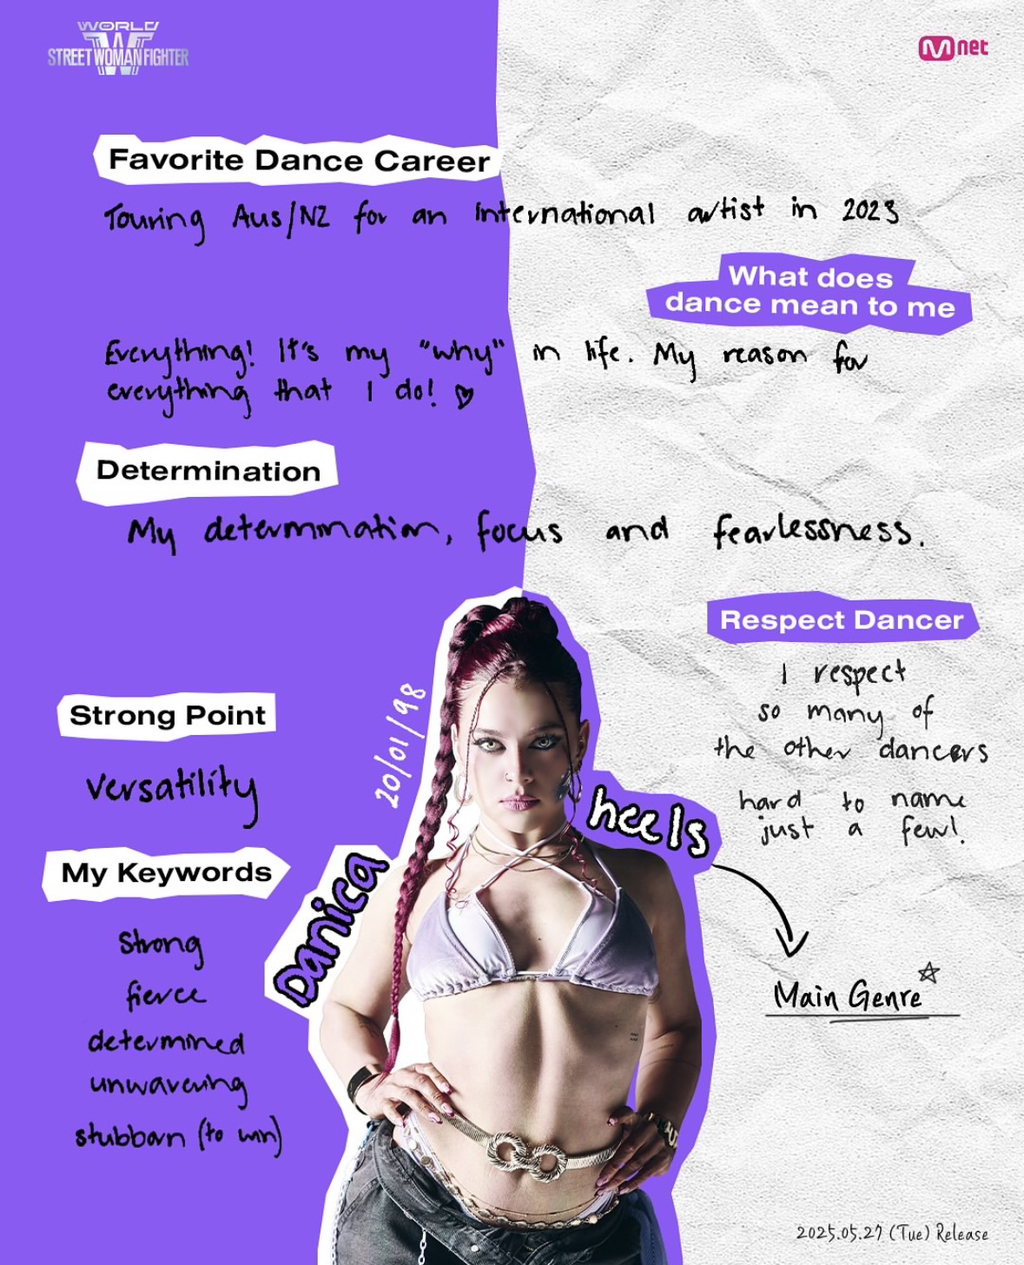 WORLD
W
STREET WOMAN FIGHTER
Mnet
Favorite Dance Career
Touring Aus/NZ for an international artist in 2023
What does
dance mean to me
Everything! It's my "why" in life. My reason for
everything that I do!
Determination
My determination, focus and fearlessness.
Respect Dancer
I respect
so many of
the other dancers
hard to name
just a few!
Strong Point
versatility
20/01/98
heels
Main Genre
Danica
My Keywords
Strong
fierce
determined
unwavering
stubborn (to win)
2025.05.27 (Tue) Release